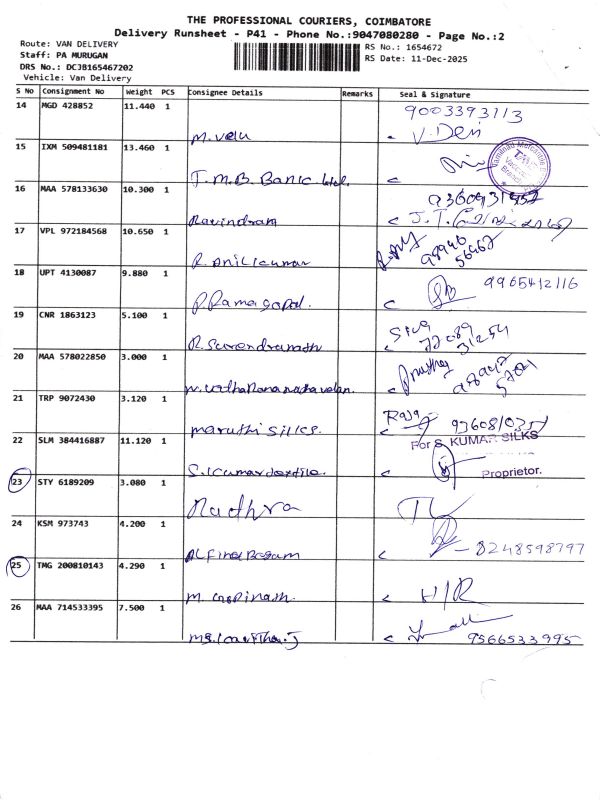 THE PROFESSIONAL COURIERS, COIMBATORE
Delivery Runsheet - P41 - Phone No.:9047080280 - Page No.:2
Route: VAN DELIVERY
Staff: PA MURUGAN
DRS No.: DCJB165467202
Vehicle: Van Delivery
RS No.: 1654672
RS Date: 11-Dec-2025
S No Consignment No Weight PCS Consignee Details Remarks Seal & Signature
14 MGD 428852 11.440 1 9003393113
M. Velu < V. Devi
15 IXM 509481181 13.460 1
T.M.B. Bank Ltd. <
16 MAA 578133630 10.300 1
Ravindram < J.T.
17 VPL 972184568 10.650 1
R. Anilkumar 98946 56467
18 UPT 4130087 9.880 1 9965412116
P Ramagopal. <
19 CNR 1863123 5.100 1 Siva
R. Surendranath <
20 MAA 578022850 3.000 1
<
21 TRP 9072430 3.120 1 Raja
maruthi silks. <
22 SLM 384416887 11.120 1 For S. KUMAR SILKS
S. Kumar textile. < Proprietor.
23 STY 6189209 3.080 1
Radhra
24 KSM 973743 4.200 1
< - 8248598797
25 TMG 200810143 4.290 1
M. Gopinath. < H/R
26 MAA 714533395 7.500 1
< 9566533995